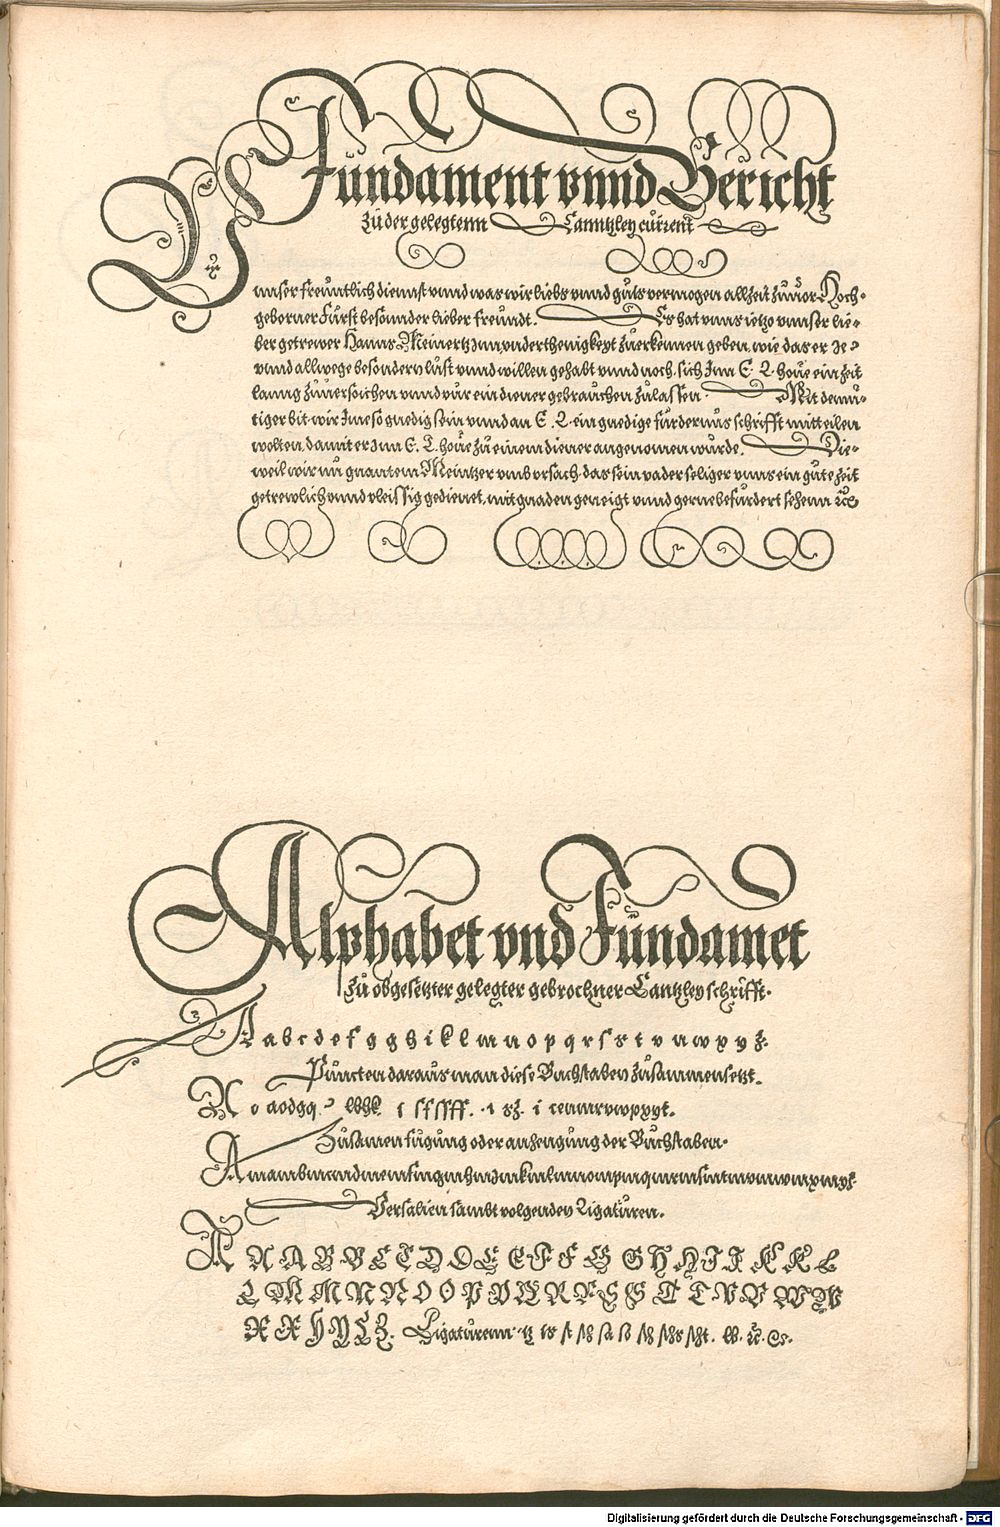 Fundament vnnd Bericht
Zů der gelegtenn Canntzley current
Vnnser freůntlich diennst vnnd was wir liebs vnnd gůts vermogen allzeit zůuor Hoch-
geborner Fürst besonnder lieber freůndt. Es hat vnns ietzo vnnser lie-
ber getrewer Hanns Meinertz inn vnderthenigkeyt zůerkennen geben, wie das er Je
vnnd allwege besondern lůst vnnd willen gehabt vnnd noch, sich Inn E. L. houe ein zeit
lanng zůuersůchen vnnd vür ein diener gebrauchen zůlassen. Mit demů-
tiger bit wir Ime so gnedig sein vnnd an E. L. ein gnedige fürdernůs schrifft mitteilen
wolten, damit er Inn E. L. houe zů einem diener angenomen würde. Die-
weil wir nů gnantem Meintzer vmb vrsach, das sein vader seliger vnns ein gůte zeit
getrewlich vnnd vleissig gedienet, mit gnaden geneigt vnnd gerne befürdert sehenn ꝛc
Alphabet vnd Fundamet
Zů obgesetzter gelegter gebrochner Cantzley schrifft.
A a b c d e f g g h i k l m n o p q r s s t v u w x y z.
Puncten daraus man diese Bůchstaben zůsammensetzt.
Zůsamen fügůng oder anhengůng der Bůchstaben.
Versalien sambt volgenden Ligatůren.
A A A B B C C D D E E F F G G H H I I K K L
L M M N N O O P P Q R R S S T T V V W W
X X Y Y Z Z. Ligatůrenn
Digitalisierung gefördert durch die Deutsche Forschungsgemeinschaft - DFG